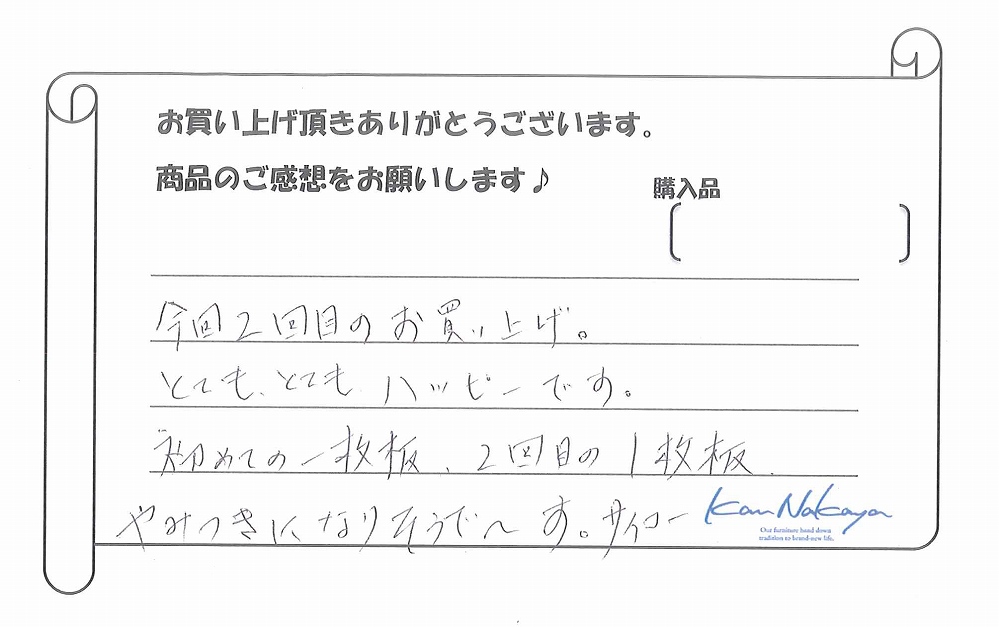 お買い上げ頂きありがとうございます。
商品のご感想をお願いします♪
購入品
今回2回目のお買い上げ。
とても、とても ハッピーです。
初めての一枚板、2回目の1枚板、
やみつきになりそうで〜す。サイコー
Kan Nakaya
Our furniture hand down
tradition to brand-new life.